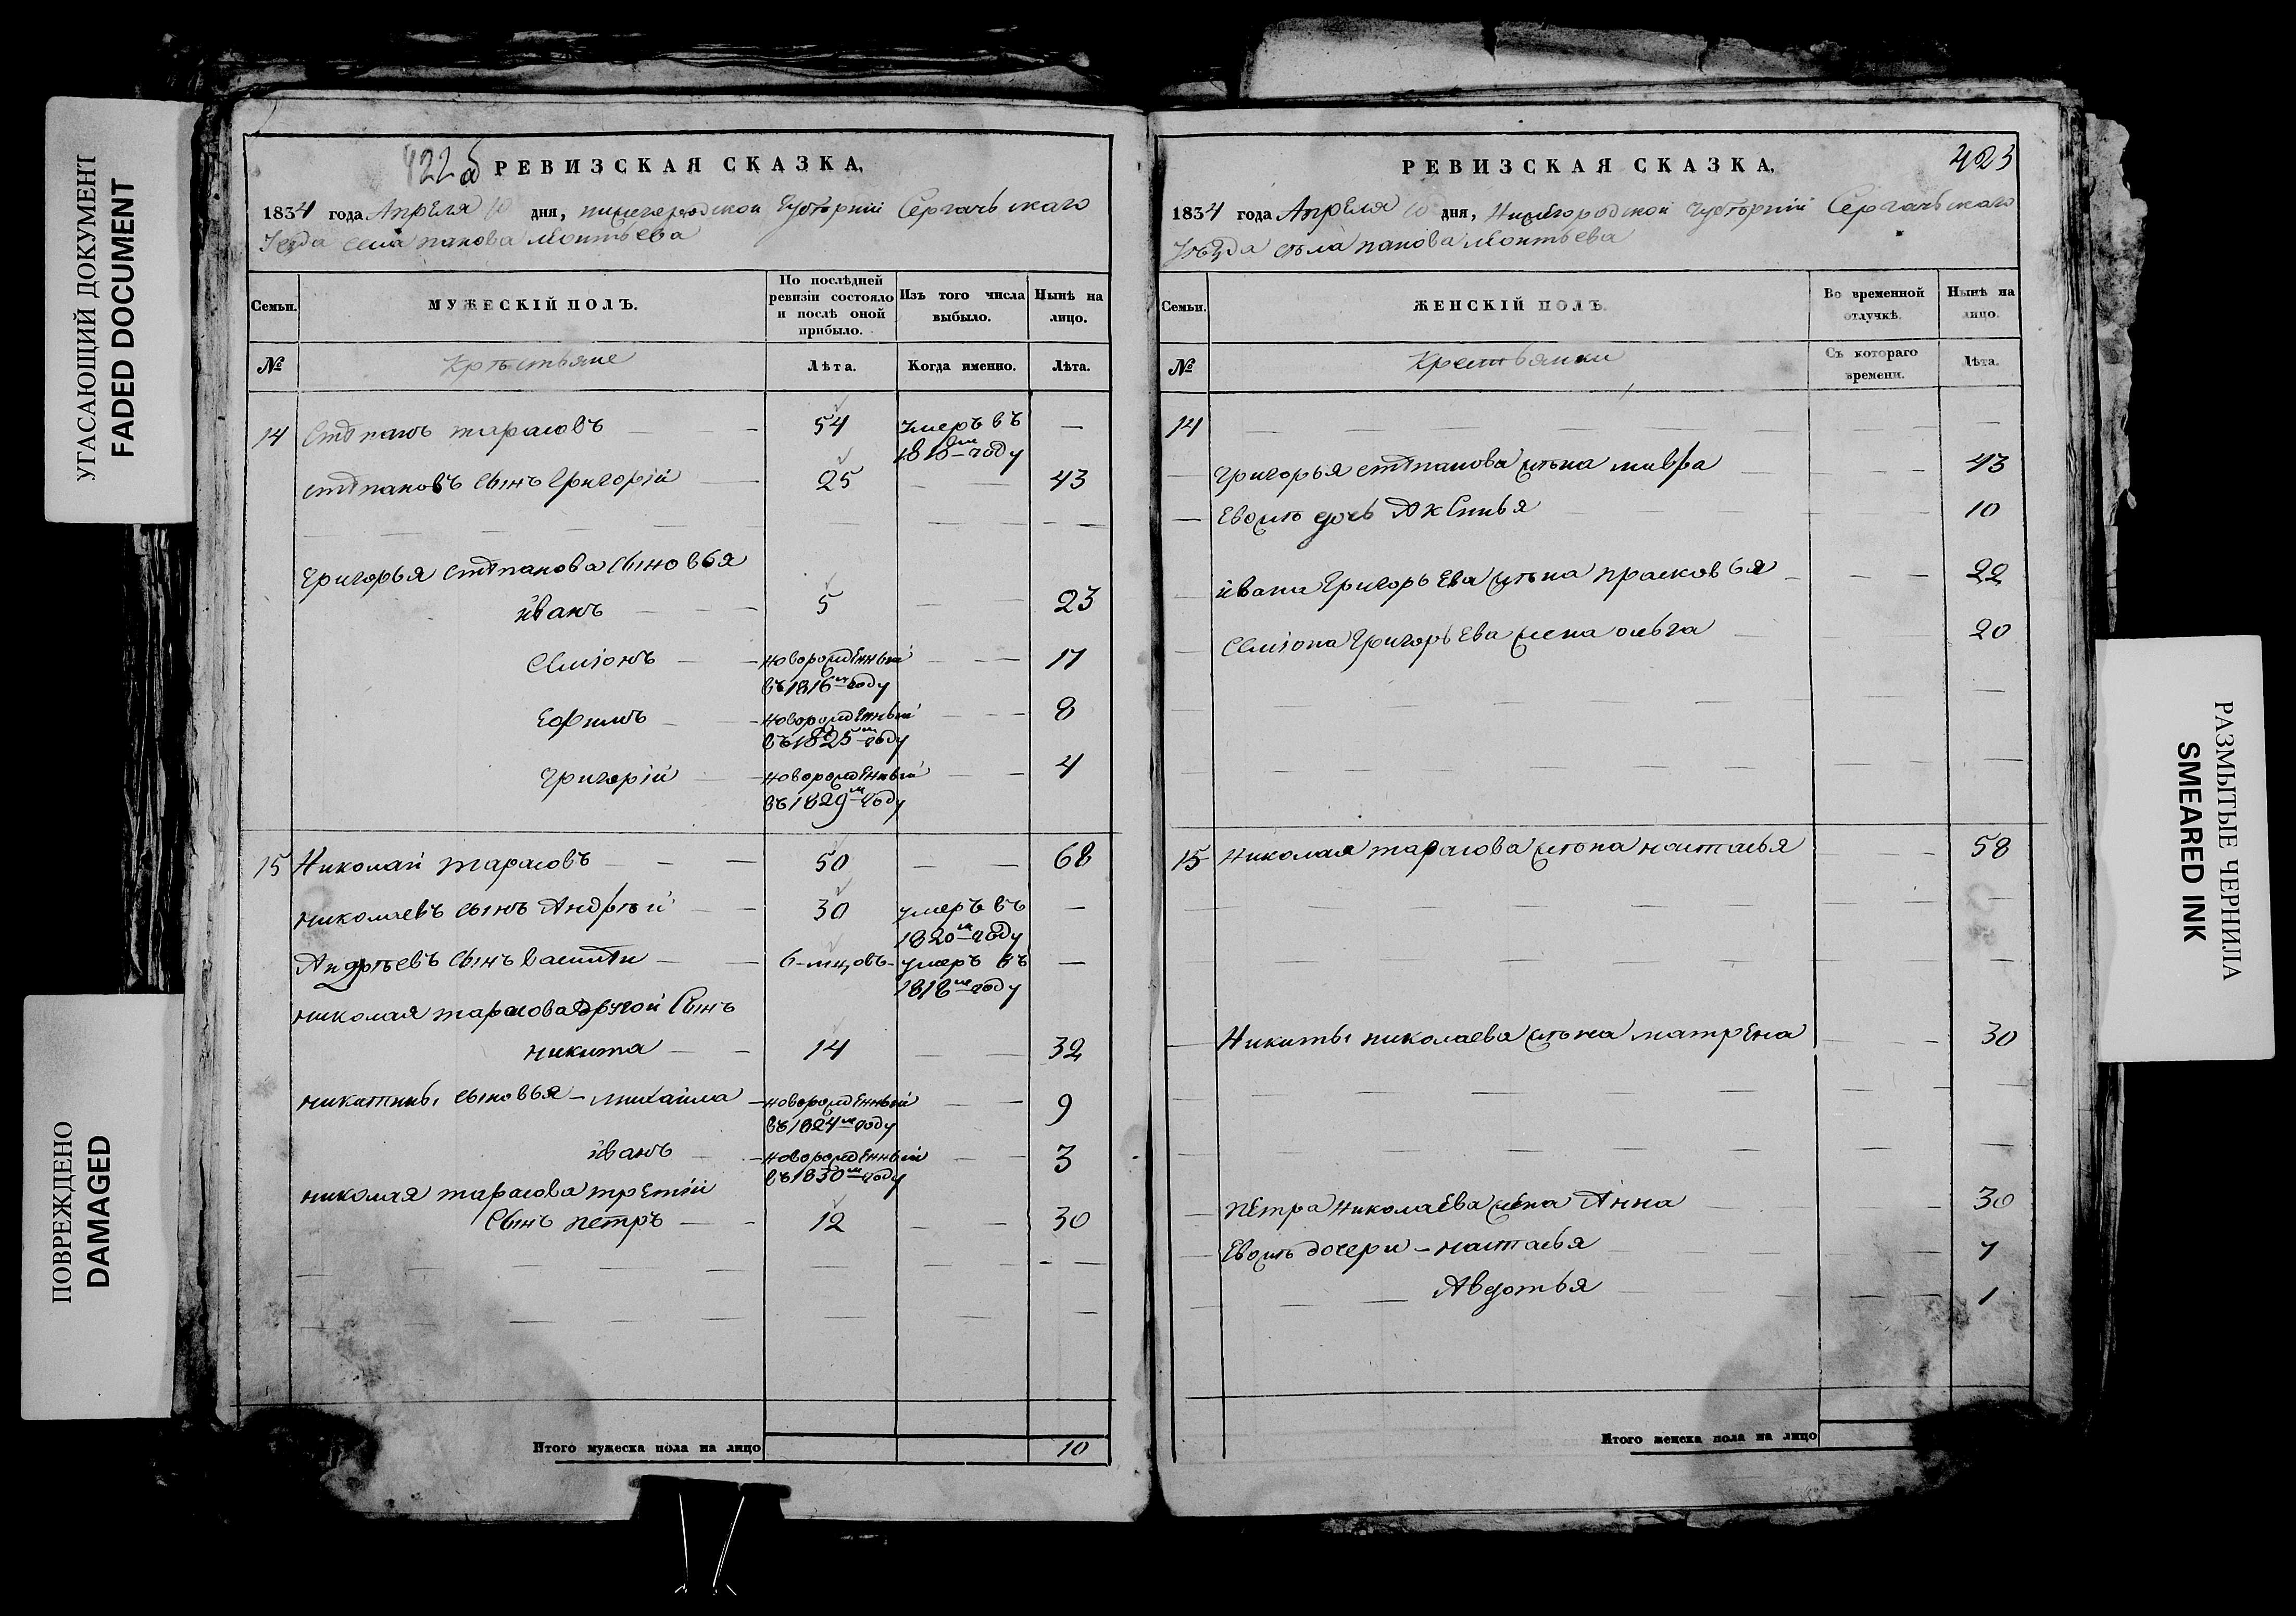 УГАСАЮЩИЙ ДОКУМЕНТ
FADED DOCUMENT
ПОВРЕЖДЕНО
DAMAGED
422 об
РЕВИЗСКАЯ СКАЗКА,
1834 года Апреля 10 дня, нижегородской Губѣрніи Сергачьскаго
Уезда села панова леонтьева
Семьи.
МУЖЕСКІЙ ПОЛЪ.
По послѣдней ревизіи состояло и послѣ оной прибыло.
Изъ того числа выбыло.
Нынѣ на лицо.
№
Крѣстьяне
Лѣта.
Когда именно.
Лѣта.
14 Стѣпанъ тарасовъ — — 54 умеръ въ 1818м году —
стѣпановъ сынъ Григорій — 25 — — 43
Григорья стѣпанова сыновья
иванъ — — — 5 — — 23
Семіонъ — — новорожденный въ 1816м году — — 17
Ефимъ — — новорожденный въ 1825м году — — 8
Григорій — — новорожденный въ 1829м году — — 4
15 Николай тарасовъ — — — 50 — — 68
николаевъ сынъ Андрѣй — — 30 умеръ въ 1820м году —
Андрѣевъ сынъ василѣи — — 6-мцовъ- умеръ въ 1818м году —
николая тарасова другой Сынъ
никита — — 14 — — 32
никитины сыновья – михаила – новорожденный въ 1824м году — — 9
иванъ — — новорожденный въ 1830м году — — 3
николая тарасова трЕтій
Сынъ петръ — — 12 — — 30
Итого мужеска пола на лицо 10
РЕВИЗСКАЯ СКАЗКА,
423
1834 года Апреля 10 дня, Нижегородской Губѣрніи Сергачьскаго
Уѣзда сѣла панова леонтьева
Семьи.
ЖЕНСКІЙ ПОЛЪ.
Во временной отлучкѣ.
Нынѣ на лицо.
№
Крестьянки
Съ котораго времени.
Лѣта.
14 — — — — —
Григорья стѣпанова жѣна мавра — — 43
— Евожъ дочь Аксинья 10
ивана Григорьева жѣна прасковья — — — 22
Семіона Григорьева жена ольга 20
15 николая тарасова жѣна настасья — 58
— Никиты николаева жѣна матрена — — 30
— петра николаева жена Анна — 30
— Евожъ дочери – настасья 7
— — — Авдотья — — 1
Итого женска пола на лицо
РАЗМЫТЫЕ ЧЕРНИЛА
SMEARED INK